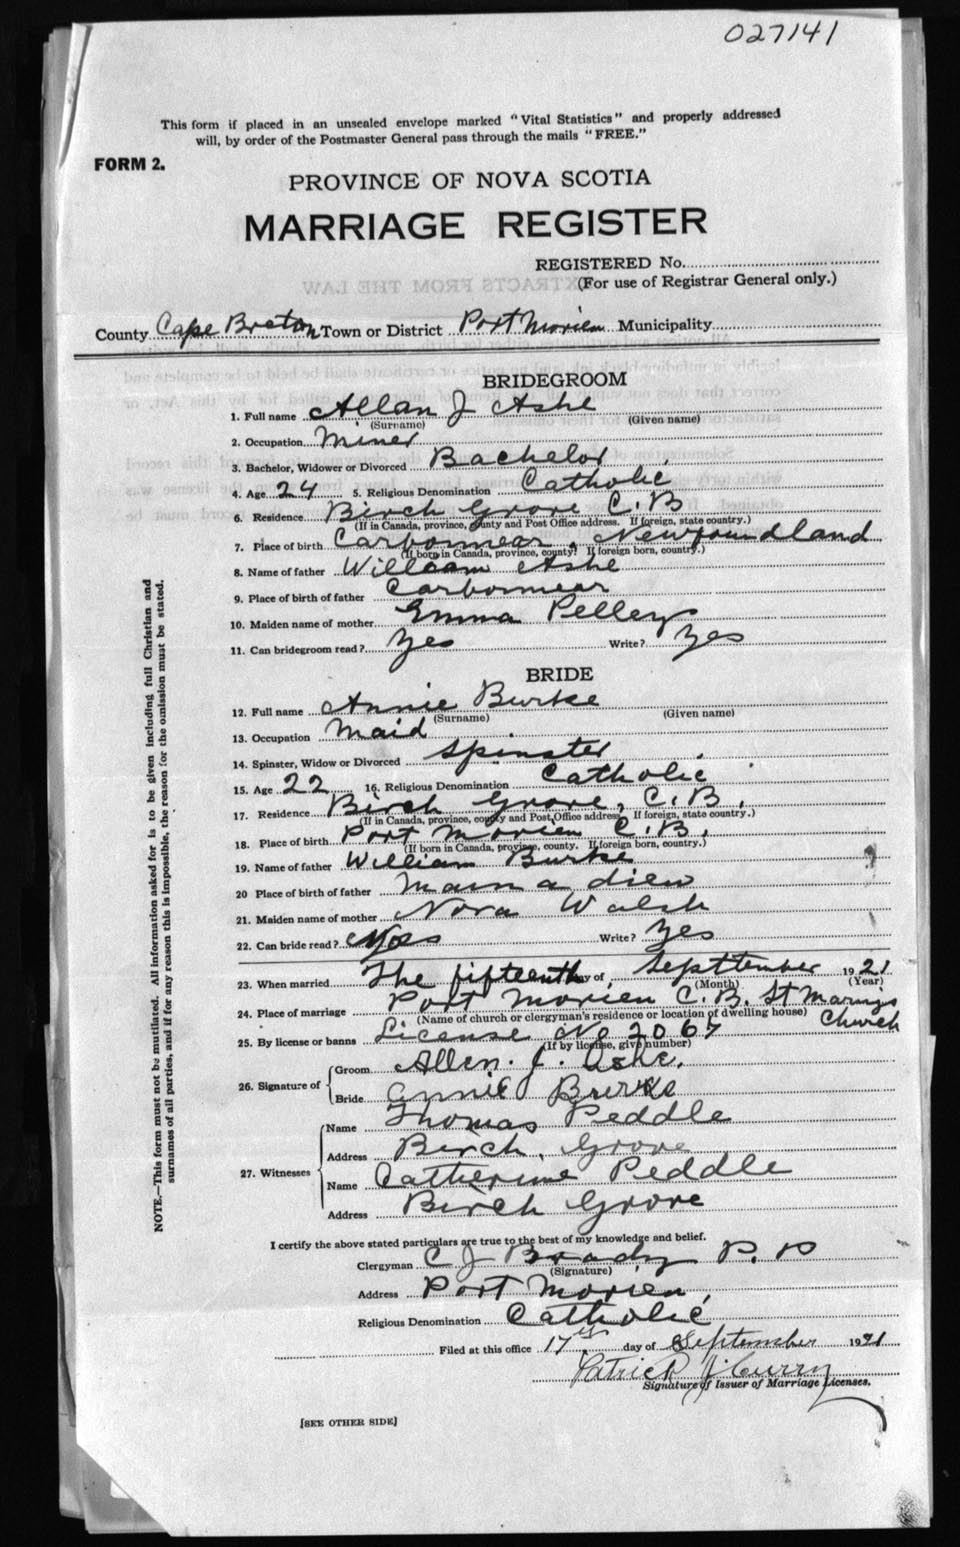 027141
This form if placed in an unsealed envelope marked "Vital Statistics" and properly addressed
will, by order of the Postmaster General pass through the mails "FREE."
FORM 2.
PROVINCE OF NOVA SCOTIA
MARRIAGE REGISTER
REGISTERED No.
(For use of Registrar General only.)
County Cape Breton Town or District Port Morien Municipality
BRIDEGROOM
1. Full name Allan J Ashe
(Surname) (Given name)
2. Occupation Miner
3. Bachelor, Widower or Divorced Bachelor
4. Age 24 5. Religious Denomination Catholic
6. Residence Birch Grove C.B
(If in Canada, province, county and Post Office address. If foreign, state country.)
7. Place of birth Carbonnear, Newfoundland
(If born in Canada, province, county. If foreign born, country.)
8. Name of father William Ashe
9. Place of birth of father Carbonnear
10. Maiden name of mother Emma Pelley
11. Can bridegroom read? Yes Write? Yes
BRIDE
12. Full name Annie Burke
(Surname) (Given name)
13. Occupation Maid
14. Spinster, Widow or Divorced Spinster
15. Age 22 16. Religious Denomination Catholic
17. Residence Birch Grove, C.B.
(If in Canada, province, county and Post Office address. If foreign, state country.)
18. Place of birth Port Morien C.B.
(If born in Canada, province, county. If foreign born, country.)
19. Name of father William Burke
20 Place of birth of father Main a dieu
21. Maiden name of mother Nora Walsh
22. Can bride read? Yes Write? Yes
23. When married The fifteenth day of Septtember 1921
(Month) (Year)
24. Place of marriage Port Morien C.B. St Marys
(Name of church or clergyman's residence or location of dwelling house) Church
25. By license or banns License No 2067
(If by license, give number)
26. Signature of Groom Allen. J. Ashe.
Bride Annie Burke
27. Witnesses Name Thomas Peddle
Address Birch, Grove
Name Catherine Peddle
Address Birch Grove
I certify the above stated particulars are true to the best of my knowledge and belief.
Clergyman C J Brady P.P
(Signature)
Address Port Morien,
Religious Denomination Catholic
Filed at this office 17th day of September 1921
Patrick J. Curry
Signature of Issuer of Marriage Licenses.
[SEE OTHER SIDE]
NOTE.—This form must not be mutilated. All information asked for is to be given including full Christian and
surnames of all parties, and if for any reason this is impossible, the reason for the omission must be stated.